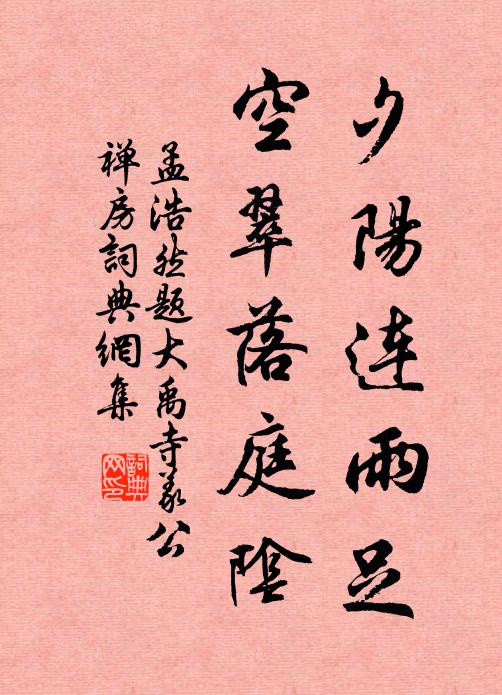 夕陽連雨足
空翠落庭陰
孟浩然題大禹寺義公
禅房詞典網集
詞典
网印